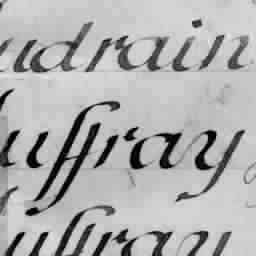 udrain
uffray
uffray